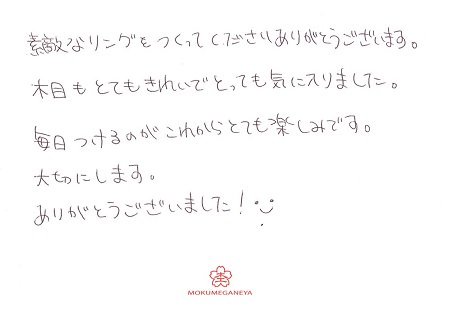 素敵なリングをつくってくださいありがとうございます。
木目もとてもきれいでとっても気に入りました。
毎日つけるのがこれからとても楽しみです。
大切にします。
ありがとうございました！
MOKUMEGANEYA